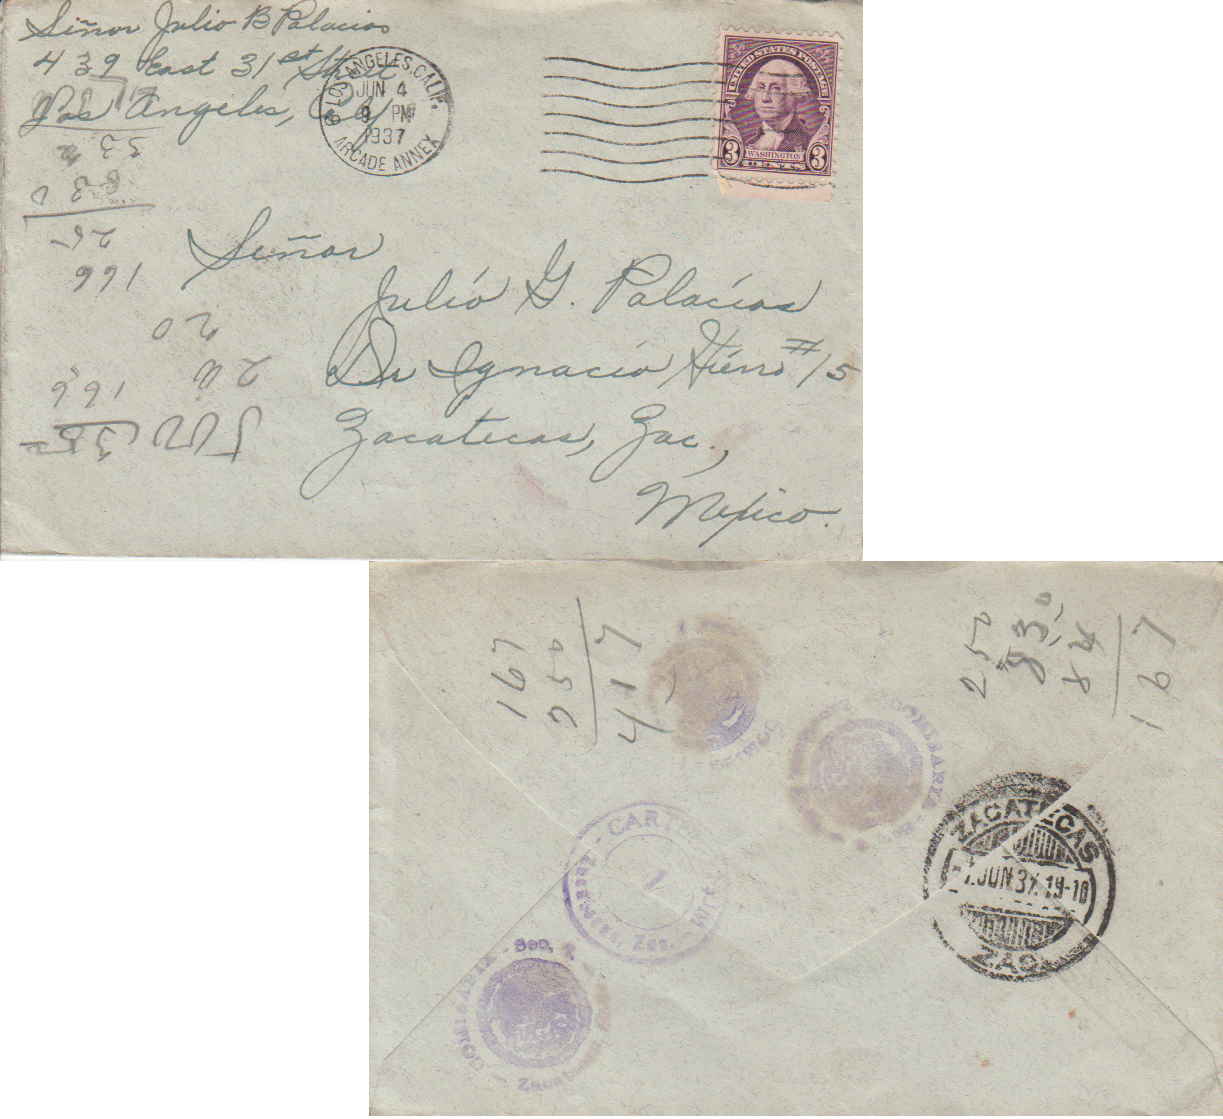 Señor Julio B Palacios
439 East 31st Street
Los Angeles, Cal
LOS ANGELES, CALIF.
JUN 4
9 PM
1937
ARCADE ANNEX
UNITED STATES POSTAGE
3 WASHINGTON 3
CENTS
33
830
25
166
20
20
166
Señor
Julió G. Palacios
Dr Ignacio Hierro #15
Zacatecas, Zac.,
Mexico.
167
250
417
250
830
84
167
CARTE
1
Zacatecas, Zac.
ZACATECAS
JUN 37 19-10
ZAC.
DOMICILIARIA
Sec.
Zacatecas